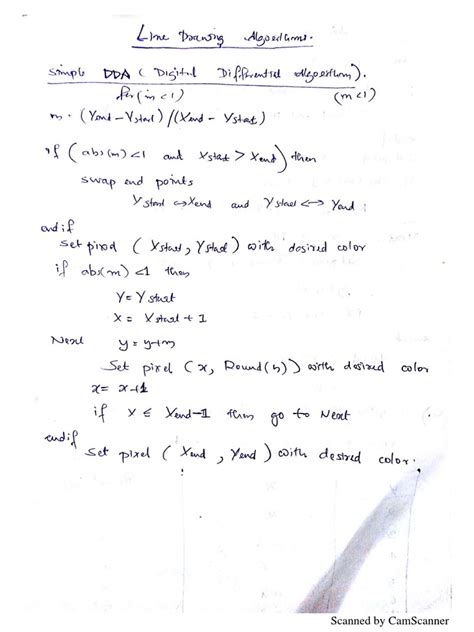 Line Drawing Algorithms.
Simple DDA ( Digital Differential Algorithm).
for (m<1) (m<1)
m = (Yend - Ystart) / (Xend - Ystart)
if ( abs(m)<1 and Xstart > Xend) then
swap end points
Xstart ↔ Xend and Ystart ↔ Yend
endif
Set pixel ( Xstart, Ystart) with desired color
if abs(m) <1 then
Y = Ystart
X = Xstart + 1
Next y = y+m
Set pixel (x, Round(y)) with desired color
x = x+1
if X ≤ Xend-1 then go to Next
endif
Set pixel ( Xend, Yend ) with desired color.
Scanned by CamScanner